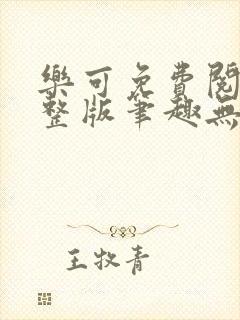 樂可免費閱
整版筆趣無
王牧青